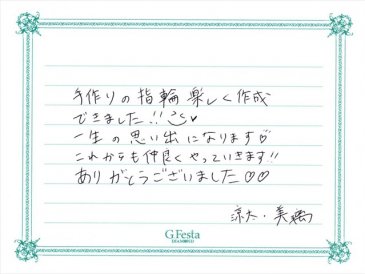 手作りの指輪楽しく作成
できました!!♡
一生の思い出になります♡
これからも仲良くやっていきます!!
ありがとうございました♡♡
涼太・美
G.Festa
DIAMOND